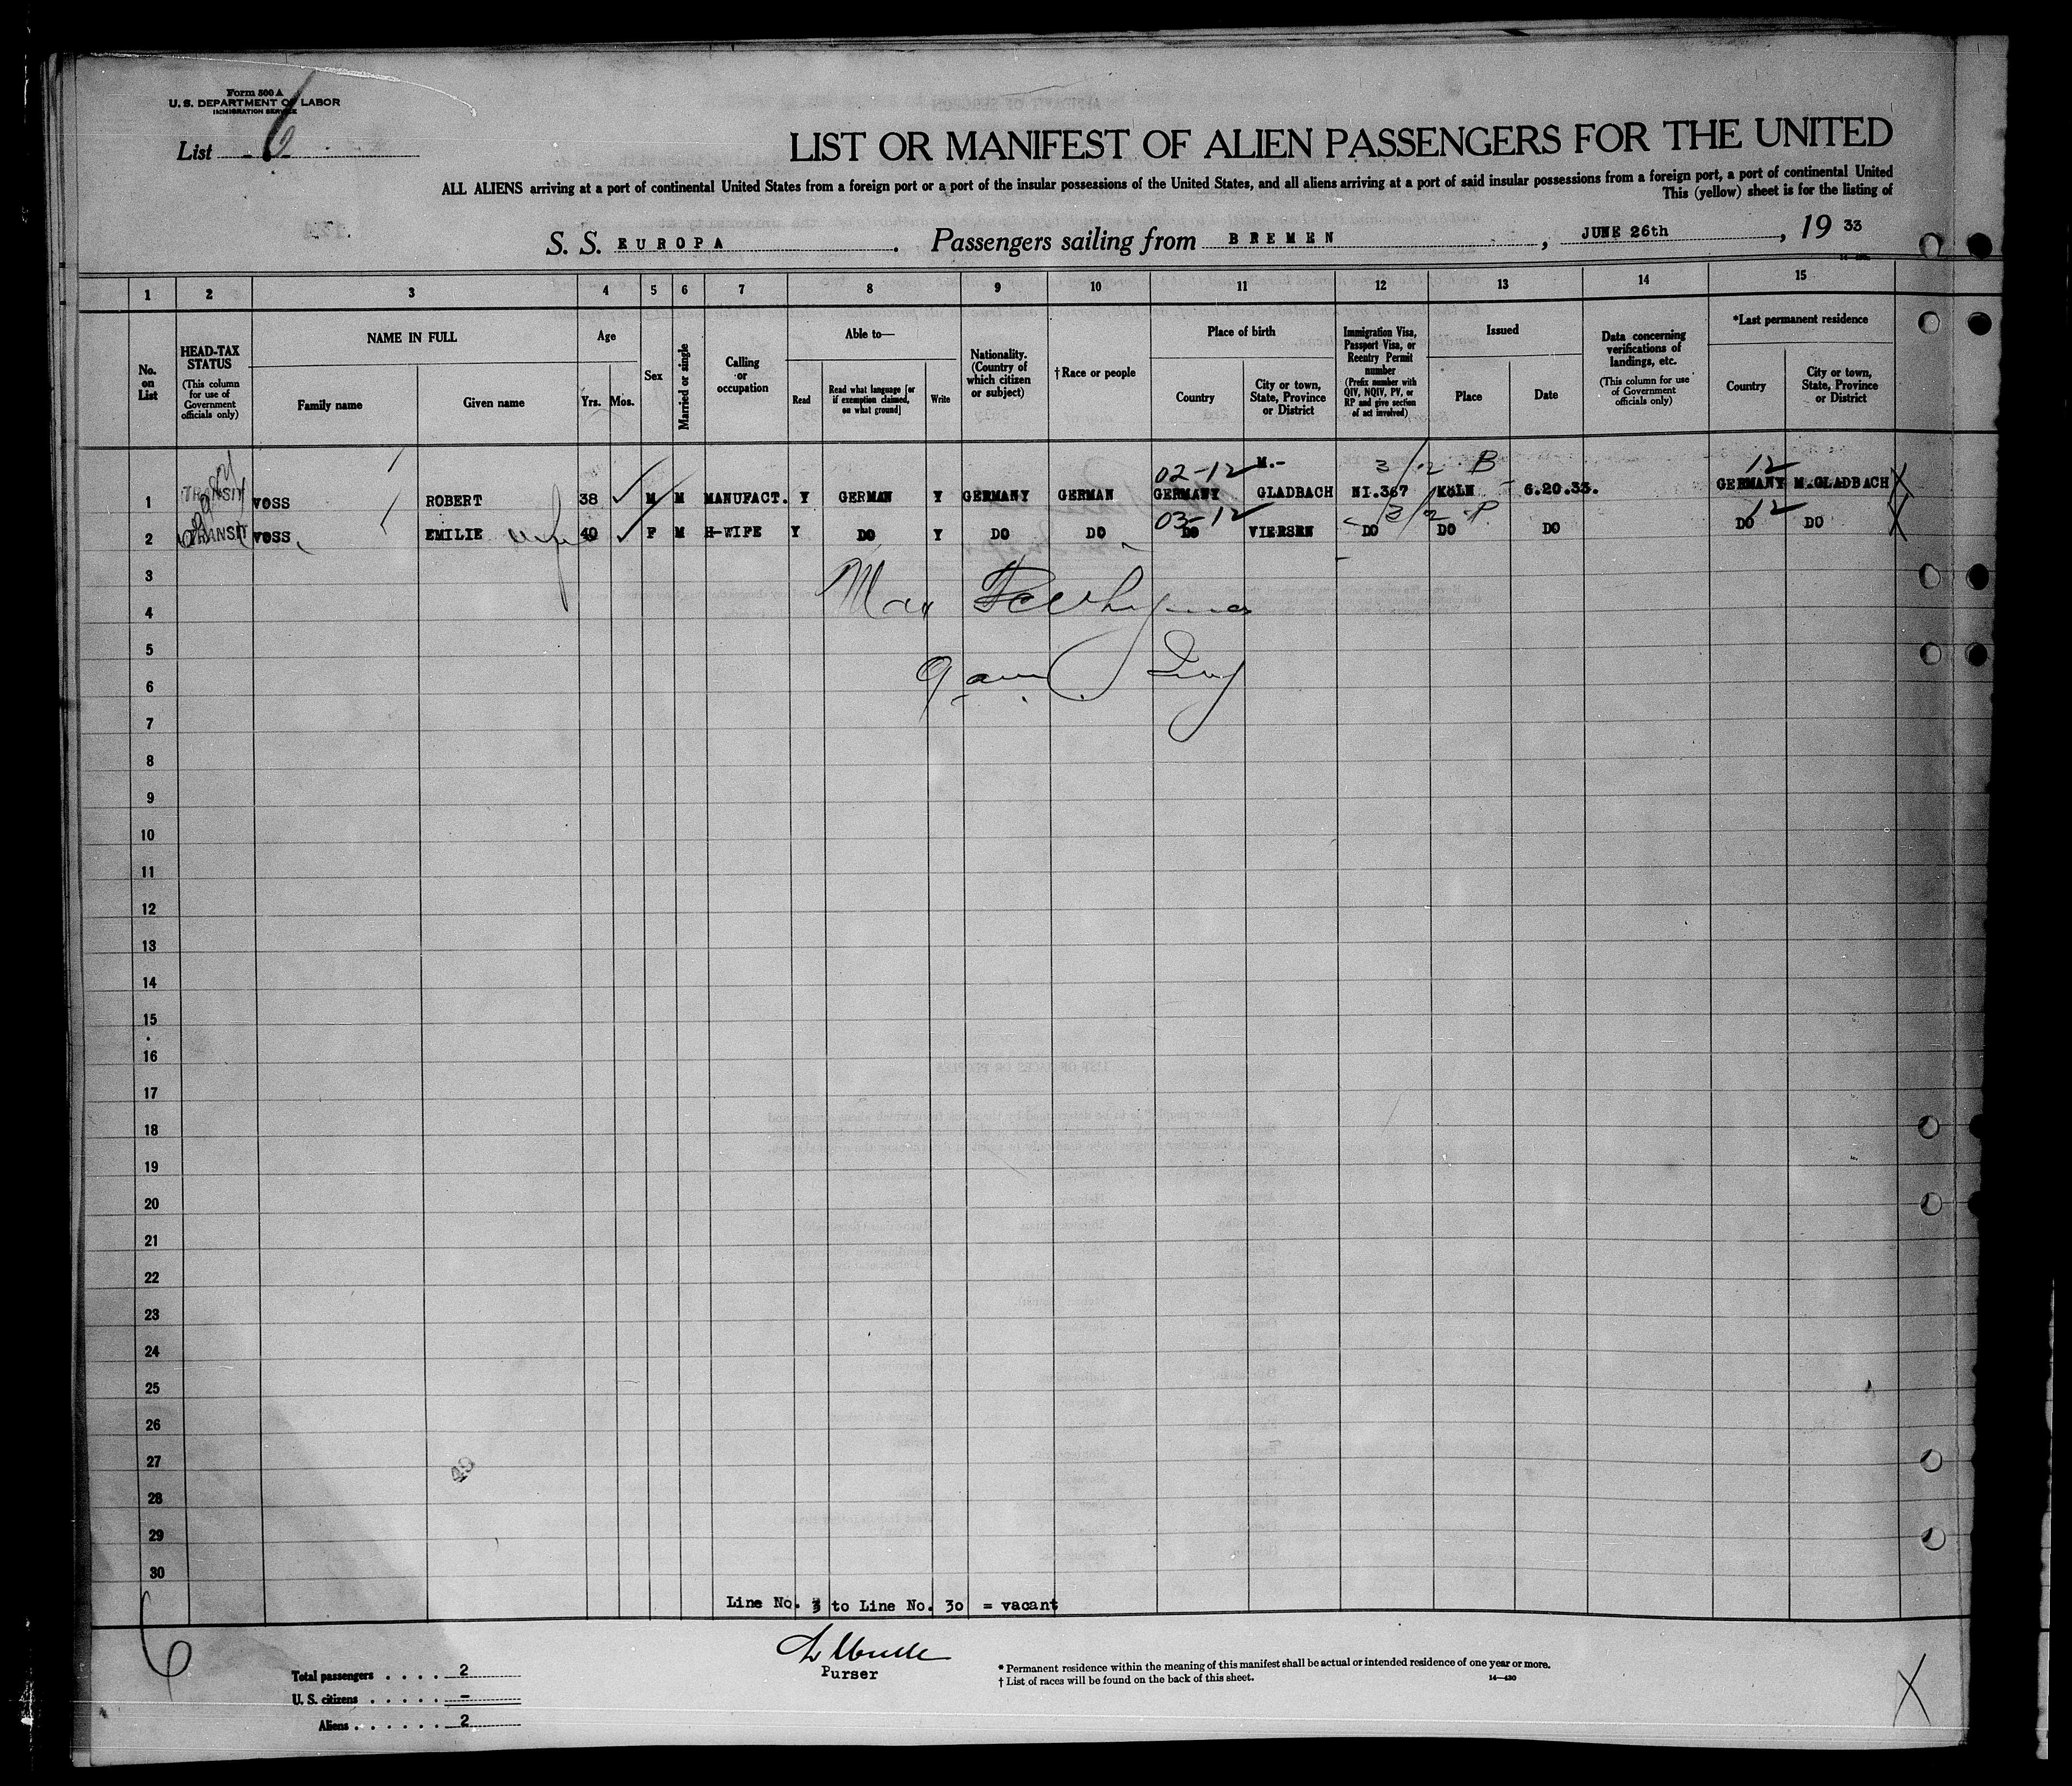 Form 500 A
U. S. DEPARTMENT OF LABOR
IMMIGRATION SERVICE
List 6
LIST OR MANIFEST OF ALIEN PASSENGERS FOR THE UNITED
ALL ALIENS arriving at a port of continental United States from a foreign port or a port of the insular possessions of the United States, and all aliens arriving at a port of said insular possessions from a foreign port, a port of continental United
This (yellow) sheet is for the listing of
S. S. EUROPA. Passengers sailing from BREMEN, JUNE 26th, 19 33
1 2 3 4 5 6 7 8 9 10 11 12 13 14 15
No. on List
HEAD-TAX STATUS
(This column for use of Government officials only)
NAME IN FULL
Family name Given name
Age
Yrs. Mos.
Sex
Married or single
Calling or occupation
Able to—
Read
Read what language [or if exemption claimed, on what ground]
Write
Nationality. (Country of which citizen or subject)
†Race or people
Place of birth
Country
City or town, State, Province or District
Immigration Visa, Passport Visa, or Reentry Permit number
(Prefix number with QIV, NQIV, PV, or RP and give section of act involved)
Issued
Place Date
Data concerning verifications of landings, etc.
(This column for use of Government officials only)
*Last permanent residence
Country
City or town, State, Province or District
02-12 M.- 3/2 B 12
1 TRANSIT VOSS ROBERT 38 M M MANUFACT. Y GERMAN Y GERMANY GERMAN GERMANY GLADBACH NI.367 KöLN 6.20.33. GERMANY M.GLADBACH
03-12 3/2 P 12
2 TRANSIT VOSS EMILIE wife 40 F M H-WIFE Y DO Y DO DO DO VIERSEN DO DO DO DO DO
3
4
5
6
7
8
9
10
11
12
13
14
15
16
17
18
19
20
21
22
23
24
25
26
27
28
29
30
49
Line No. 3 to Line No. 30 = vacant
6
Purser
Total passengers . . . . 2
U. S. citizens . . . . . –
Aliens . . . . . . 2
* Permanent residence within the meaning of this manifest shall be actual or intended residence of one year or more.
† List of races will be found on the back of this sheet.
14—430
X